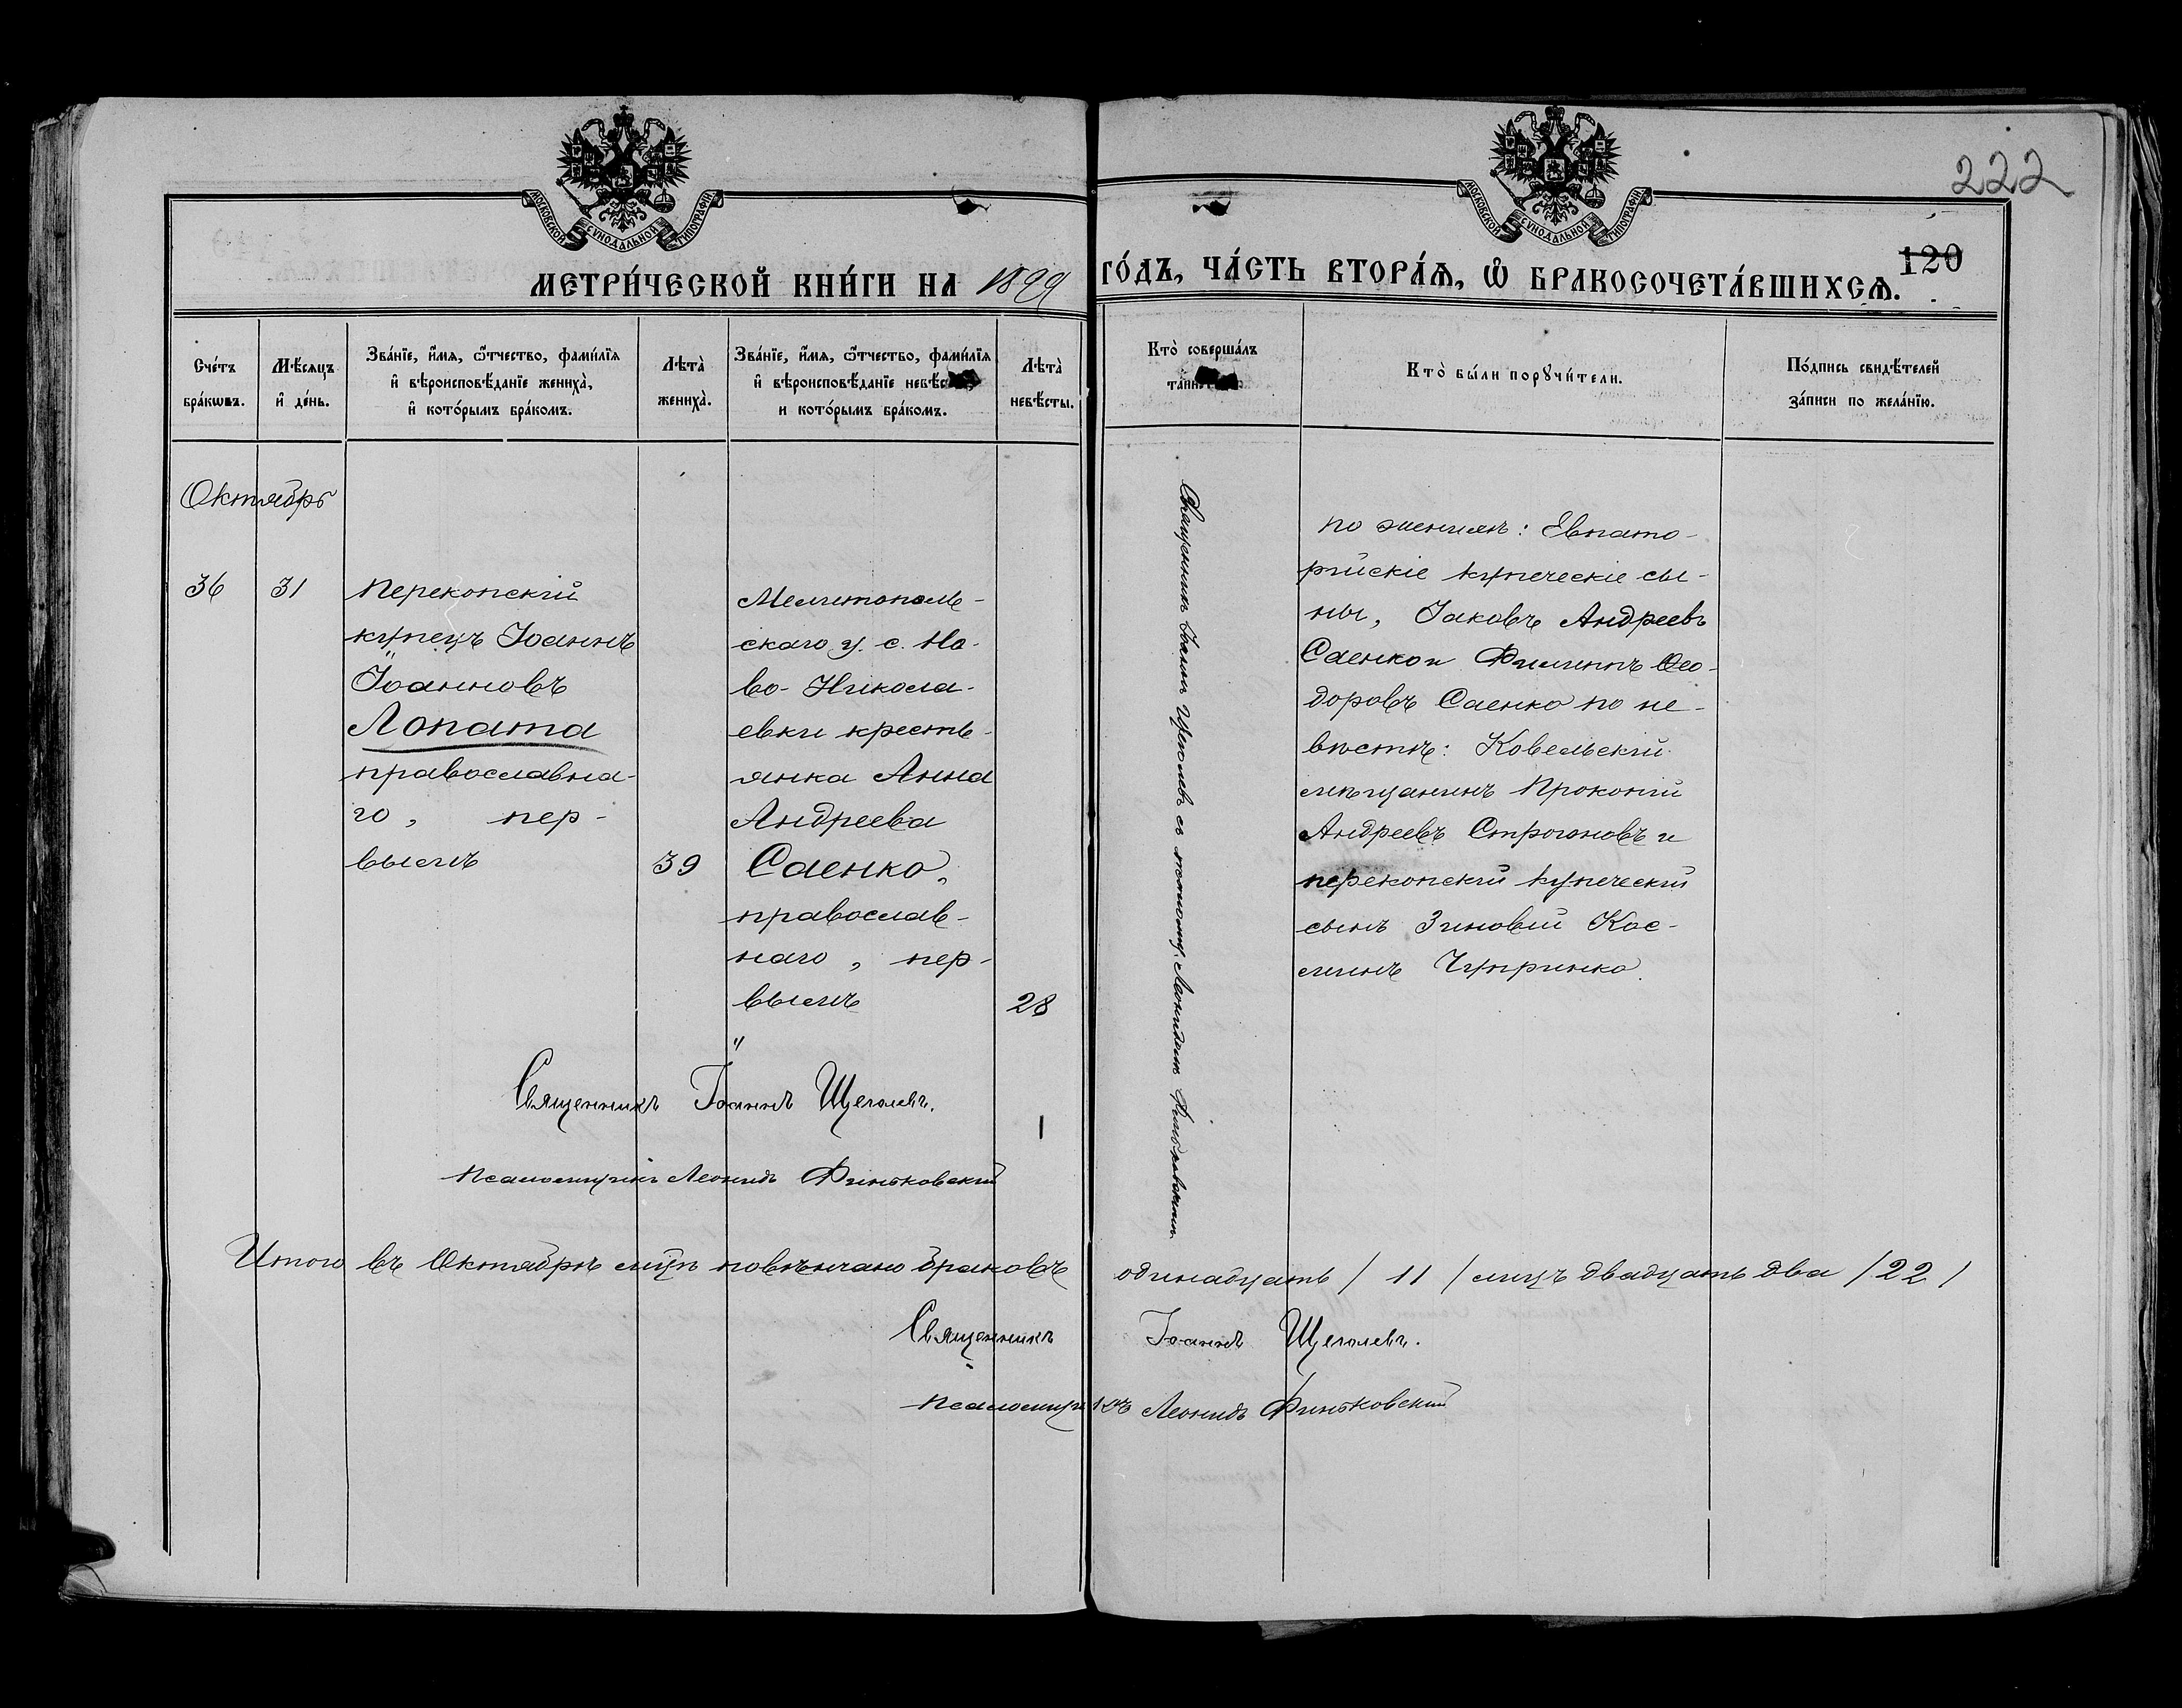 222
120
МОСКОВСКОЙ СѴНОДАЛЬНОЙ ТИПОГРАФІИ
МОСКОВСКОЙ СѴНОДАЛЬНОЙ ТИПОГРАФІИ
МЕТРИ́ЧЕСКОЙ КНИ́ГИ НА 1899 ГО́ДЪ, ЧА́СТЬ ВТОРА́Ѧ, Ѽ БРАКОСОЧЕТА́ВШИХСѦ.
Сче́тъ
бра́кωвъ.
Мѣ́сѧцъ
и҆ де́нь.
Зва́нїе, и҆́мѧ, ѻ҆́тчество, фами́лїѧ
и҆ вѣроисповѣ́данїе жениха̀,
и҆ кото́рымъ бра́комъ.
Лѣта̀
жениха̀.
Зва́нїе, и҆́мѧ, ѻ҆́тчество, фами́лїѧ
и҆ вѣроисповѣ́данїе
и кото́рымъ бра́комъ.
Лѣта̀
невѣ́сты.
Кто̀ соверша́лъ
Кто̀ бы́ли порꙋчи́тели.
По́дпись свидѣ́телей
за́писи по жела́нїю.
Октябрь
36
31
Перекопскій
купецъ Іоаннъ
Іоанновъ
Лопата
православна-
го, пер-
вымъ
39
Мелитополь-
скаго у. с. Но-
во-Никола-
евки кресть-
янка Анна
Андреева
Саенко,
православ-
наго, пер-
вымъ
28
Священникъ Іоаннъ Щеголевъ съ псаломщ. Леонидомъ Финьковскимъ
по женихѣ: Евпато-
рійскіе купеческіе сы-
ны, Іаковъ Андреевъ
Саенко и Филиппъ Ѳео-
доровъ Саенко по не-
вѣстѣ: Ковельскій
мѣщанинъ Прокопій
Андреевъ Строгоновъ и
перекопскій купеческій
сынъ Зиновій Кос-
минъ Чупринко.
Священникъ Іоаннъ Щеголевъ.
1
Псаломщикъ Леонидъ Финьковскій
Итого въ Октябрѣ мцѣ повѣнчано браковъ одинадцать / 11 / лицъ двадцать два / 22 /
Священникъ Іоаннъ Щеголевъ.
Псаломщикъ Леонидъ Финьковскій